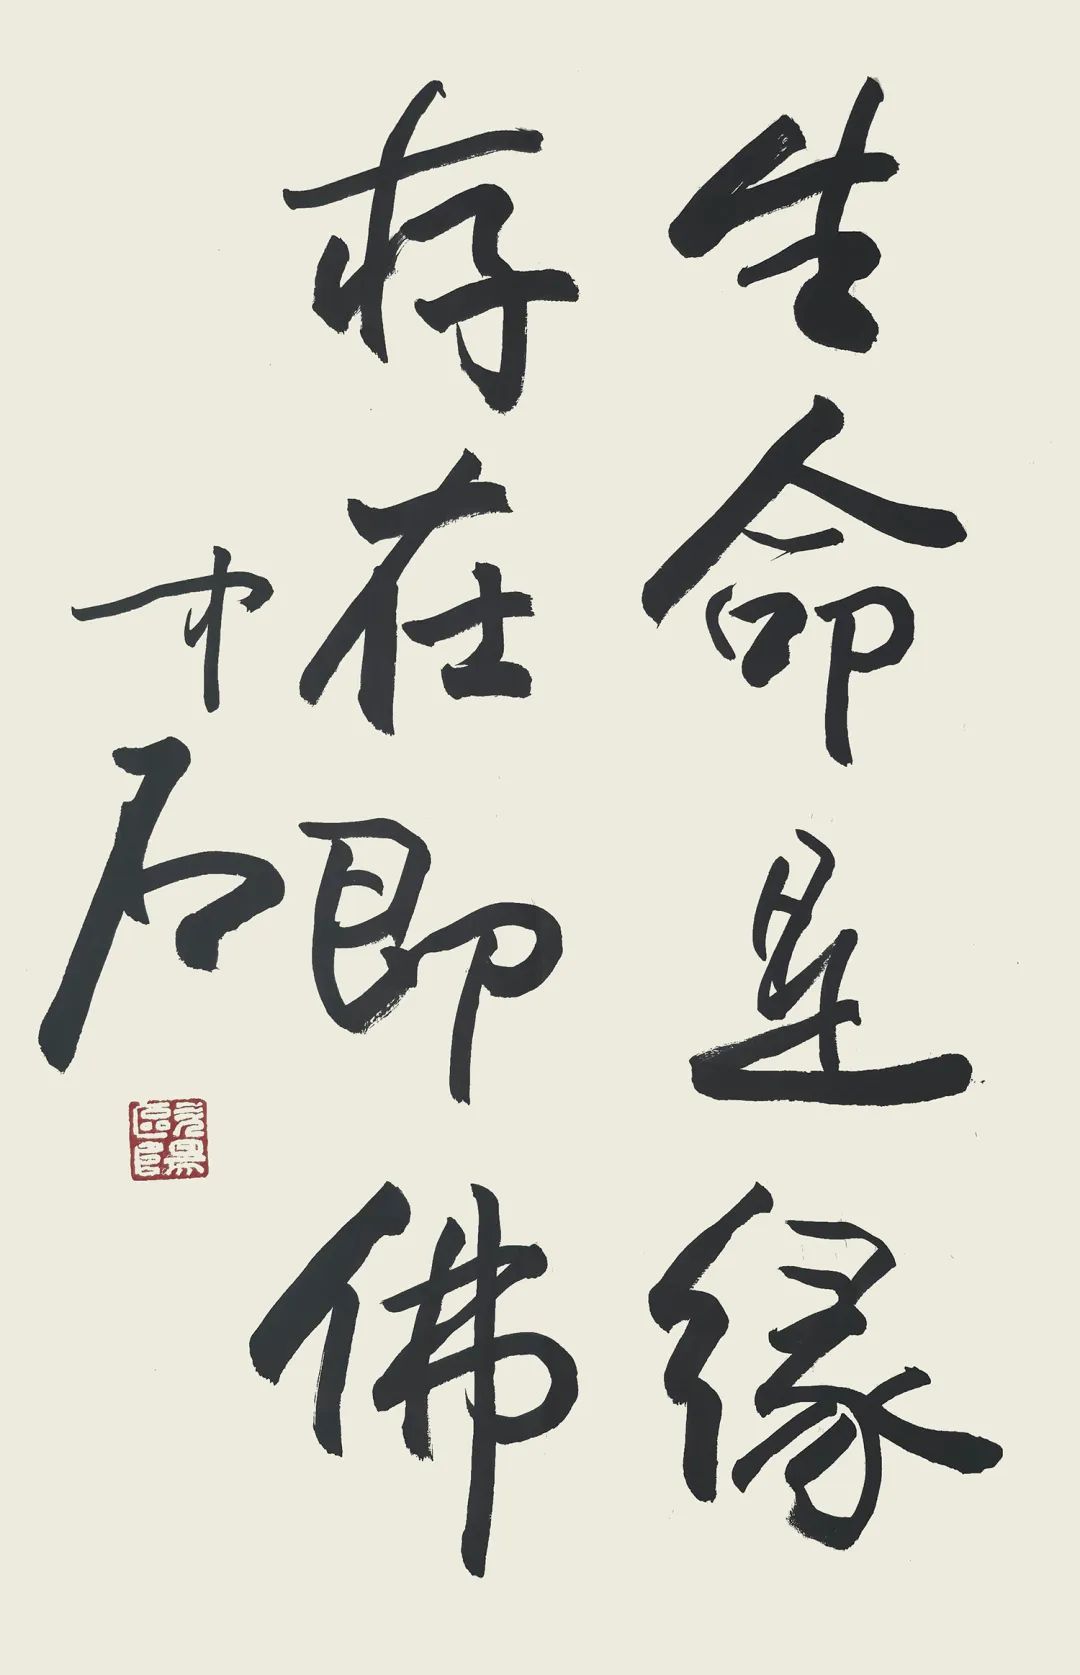 生命是缘
存在即佛
中石